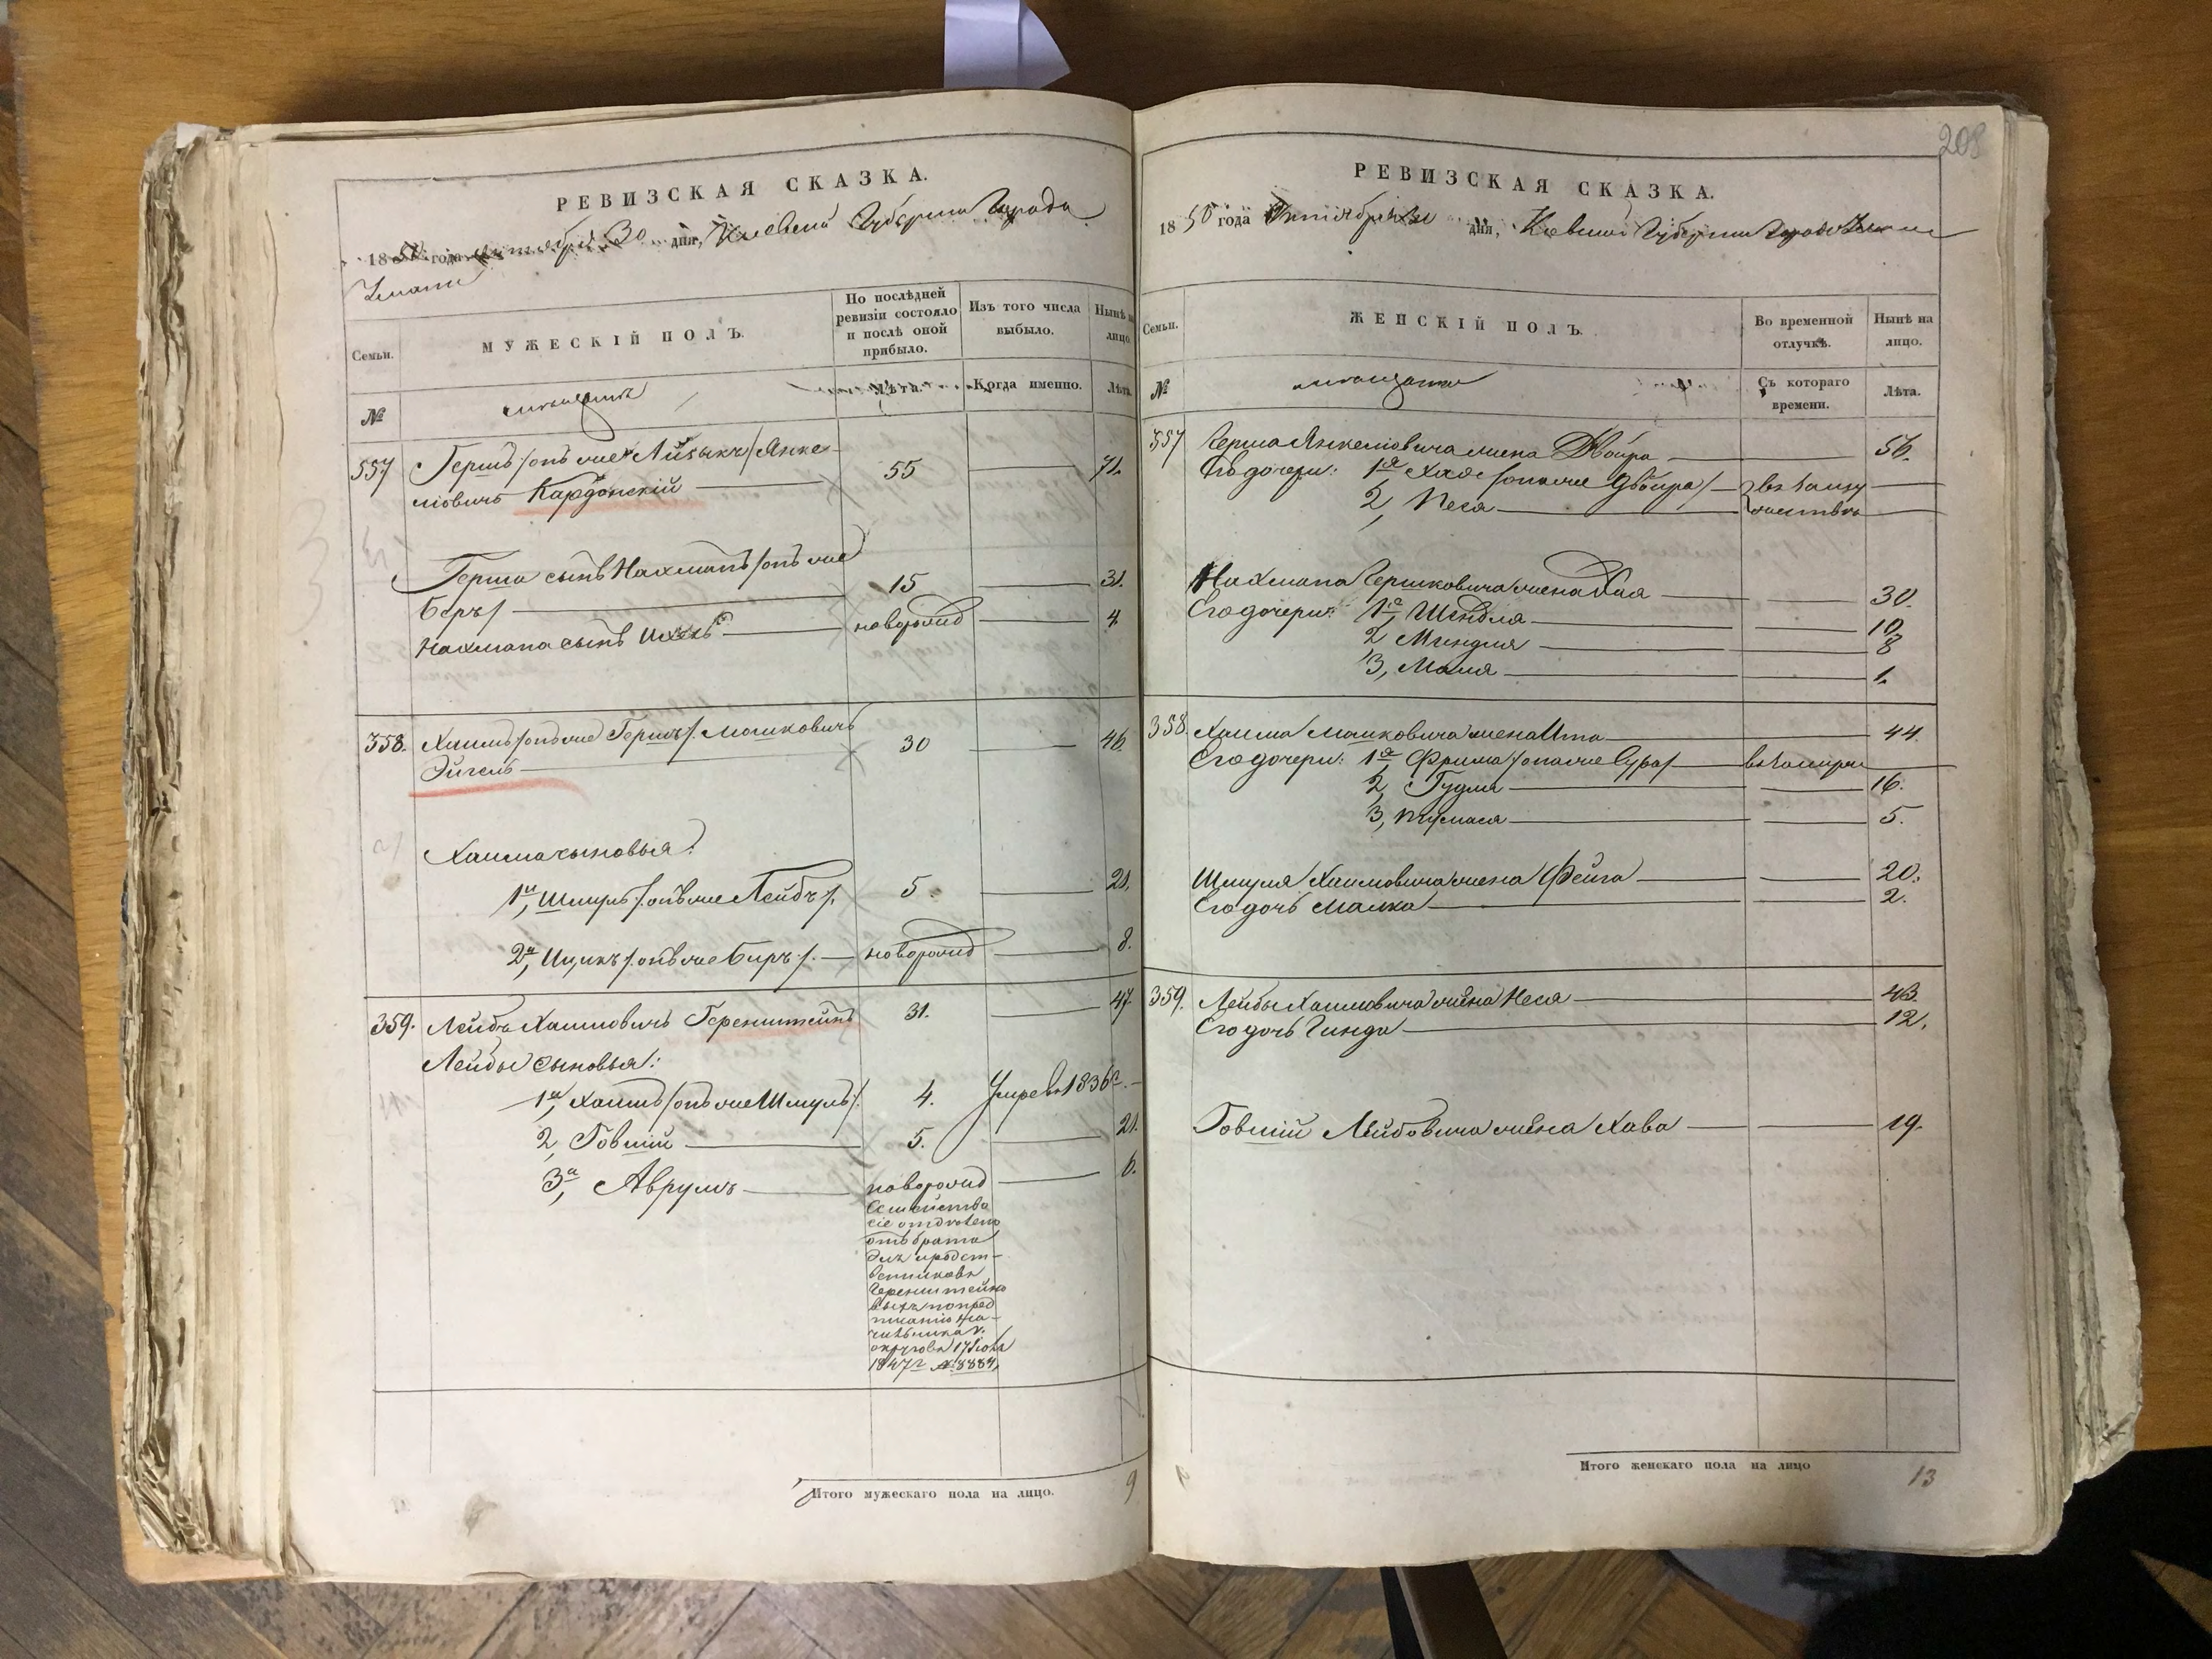 208
РЕВИЗСКАЯ СКАЗКА.
1850 года октября 30 дня, Киевской Губернии Города
Умани
Семьи.
МУЖЕСКІЙ ПОЛЪ.
По послѣдней ревизіи состояло и послѣ оной прибыло.
Изъ того числа выбыло.
Нынѣ на лицо.
№
мещане
Лѣта.
Когда именно.
Лѣта.
357 Гершъ /онъ же Айзыкъ/ Янке- 55 71.
ліовичъ Кардонскій
Герша сынъ Нахманъ /онъ же 15 31.
Беръ/
Нахмана сынъ новорожд 4
358. Хаимъ /онъ же Гершъ/ Мошковичъ 30 46.
Эйгель
Хаима сыновья:
1й, Шмуль /онъ же Лейбъ/. 5. 21.
2й, Ицикъ /онъ же Беръ/. новорожд 8.
359. Лейба Хаимовичъ Геренштейнъ 31. 47.
Лейбы сыновья:
1й, Хаимъ /онъ же Шмуль/. 4. Умре въ 1836 г.
2, Говшій 5. 21.
3й, Аврумъ новорожд 6.
Семейство
сіе отдѣлено
отъ брата
Геренштейно
выхъ по пред
писанію На-
чальника V.
округа 17
1847 г № 8884,
Итого мужескаго пола на лицо. 9
РЕВИЗСКАЯ СКАЗКА.
1850 года Октября 30 дня, Кіевской Губерніи Города Умани
Семьи.
ЖЕНСКІЙ ПОЛЪ.
Во временной отлучкѣ.
Нынѣ на лицо.
№
мещанки
Съ котораго времени.
Лѣта.
357 Герша Янкеліовича жена Двойра 56.
Его дочери: 1я Хае /она же Двойра/ въ замуж
2, Песа жествѣ
Нахмана Гершковича жена Хая 30.
Его дочери: 1я, Шендля 10
2 Миндля 8
3, Маля 1.
358. Хаима Мошковича жена Ита 44.
Его дочери: 1я Фрима /она же Сура/
2, Гудля 16.
3, 5.
Шмуля Хаимовича жена Фейга 20.
Его дочь Малка 2.
359. Лейбы Хаимовича жена Неся 43.
Его дочь Гинда 12.
Говшій Лейбовича жена Хава 19.
Итого женскаго пола на лицо 13